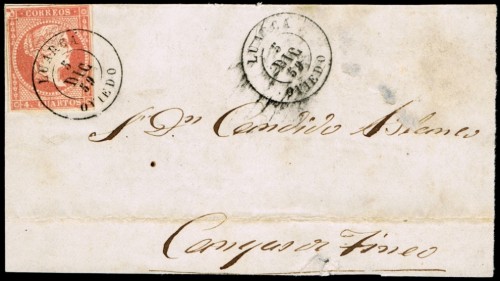 CORREOS
4 CUARTOS
LUARCA
5
DIC
59
OVIEDO
LUARCA
5
DIC
59
OVIEDO
S. Dn Candido Blanco
Cangas de Tineo